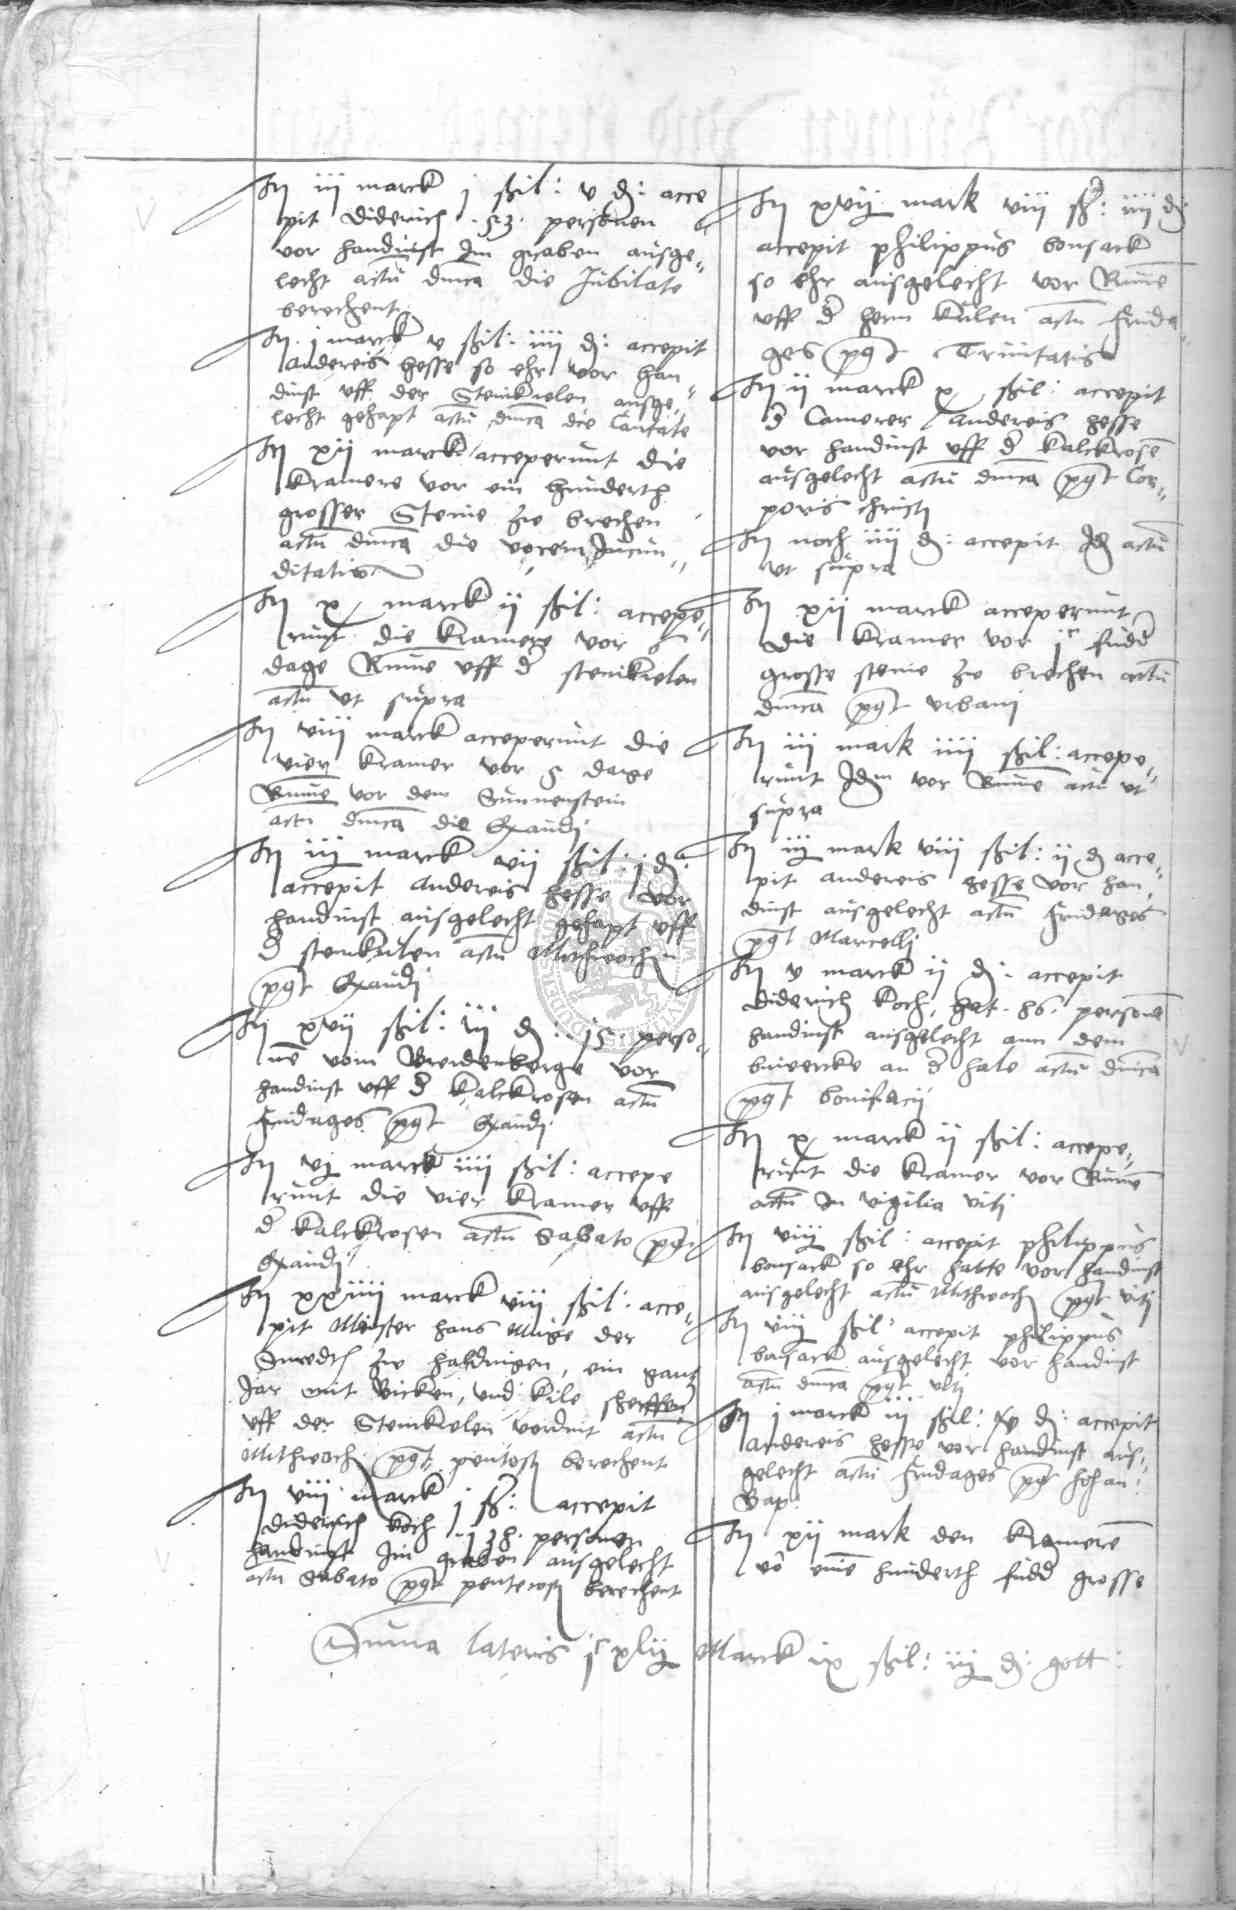 Itz iii marck j ßil: v d: acce
pit Diderich 53. personen
vor handinst Im graben ausge„
lecht actu dnica die Jubilate
berechent
Itz j marck v ßil: iiii d: accepit
Andereis hesse so ehr vor han„
dinst uff der Steinkulen ausge„
lecht gehapt actu dnica die Cantate
Itz xii marck acceperunt die
Kramere vor ein hunderth
grosser Steine zw brechen
actu dnica die vocem Jucun„
ditatis
Itz x marck ii ßil: accepe„
runt die Kramere vor 6
dage Rume uff d steinkulen
actu ut supra
Itz viii marck acceperunt die
vier Kramer vor 5 dage
Rume vor dem Sunnenstein
actu dnica die Exaudi
Itz iij marck vii ßil: j d:
accepit Andereis hesse vor
handinst ausgelecht gehapt uff
d steinkulen actu Mithwoch
pt Exaudi
Itz xvii ßil: iij d: 15 perso„
nen vom Breidenberge vor
handinst uff d kalckrosen actu
fridages pt Exaudi
Itz vj marck iiii ßil: accepe
runt die vier Kramer uff
d kalckrosen actu Sabato pt
Exaudi
Itz xxiiii marck viii ßil: acce„
pit Meister hans der
Smedth zw haldingen, ein gantz
Jar mit Bicken, und kile sherffen
uff der Steinkulen vordint actu
Mithwoch pt pentecost berechent
Itz viii marck j ß: accepit
Diderich koch 138. personen
handinst Im graben ausgelecht
actu Sabato pt pentecost berechent
Itz xvij mark viii ß: iiii d
accepit philippus bonsack
so ehr ausgelecht vor Rume
uff d hern kulen actu frida„
ges pt Trinitatis
Itz ii marck x ßil: accepit
d Camerer Andereis hesse
vor handinst uff d kalckrosen
ausgelecht actu dnica pt Cor„
poris christi
Itz noch iiii d: accepit Id actu
ut supra
Itz xii marck acceperunt
die Kramer vor jc fudd
grosse steine zw brechen actu
dnica pt urbani
Itz iii mark iiii ßil: accepe„
runt Idm vor Rume actu ut
supra
Itz iij mark viii ßil: ii d acce„
pit andereis hesse vor han„
dinst ausgelecht actu fridages
pt Marcelli
Itz v marck ii d: accepit
Diderich koch, hat 86. personen
handinst ausgelecht ann dem
buwercke an d hale actu dnica
pt bonifacii
Itz x marck ii ßil: accepe„
runt die Kramer vor Rume
actu In vigilia viti
Itz viij ßil: accepit philippus
bonsack so ehr hatte vor handinst
ausgelecht actu Mithwoch pt viti
Itz viij ßil: accepit philippus
bonsack ausgelecht vor handinst
actu dnica pt viti
Itz j marck iii ßil: d: accepit
Andereis hesse vor handinst aus„
gelecht actu fridages pt Johan:
Bap:
Itz xii mark den Kramere
vor eine hunderth fudd grosse
Suma lateris jc xlij Marck ix ßil: iij d: gott: